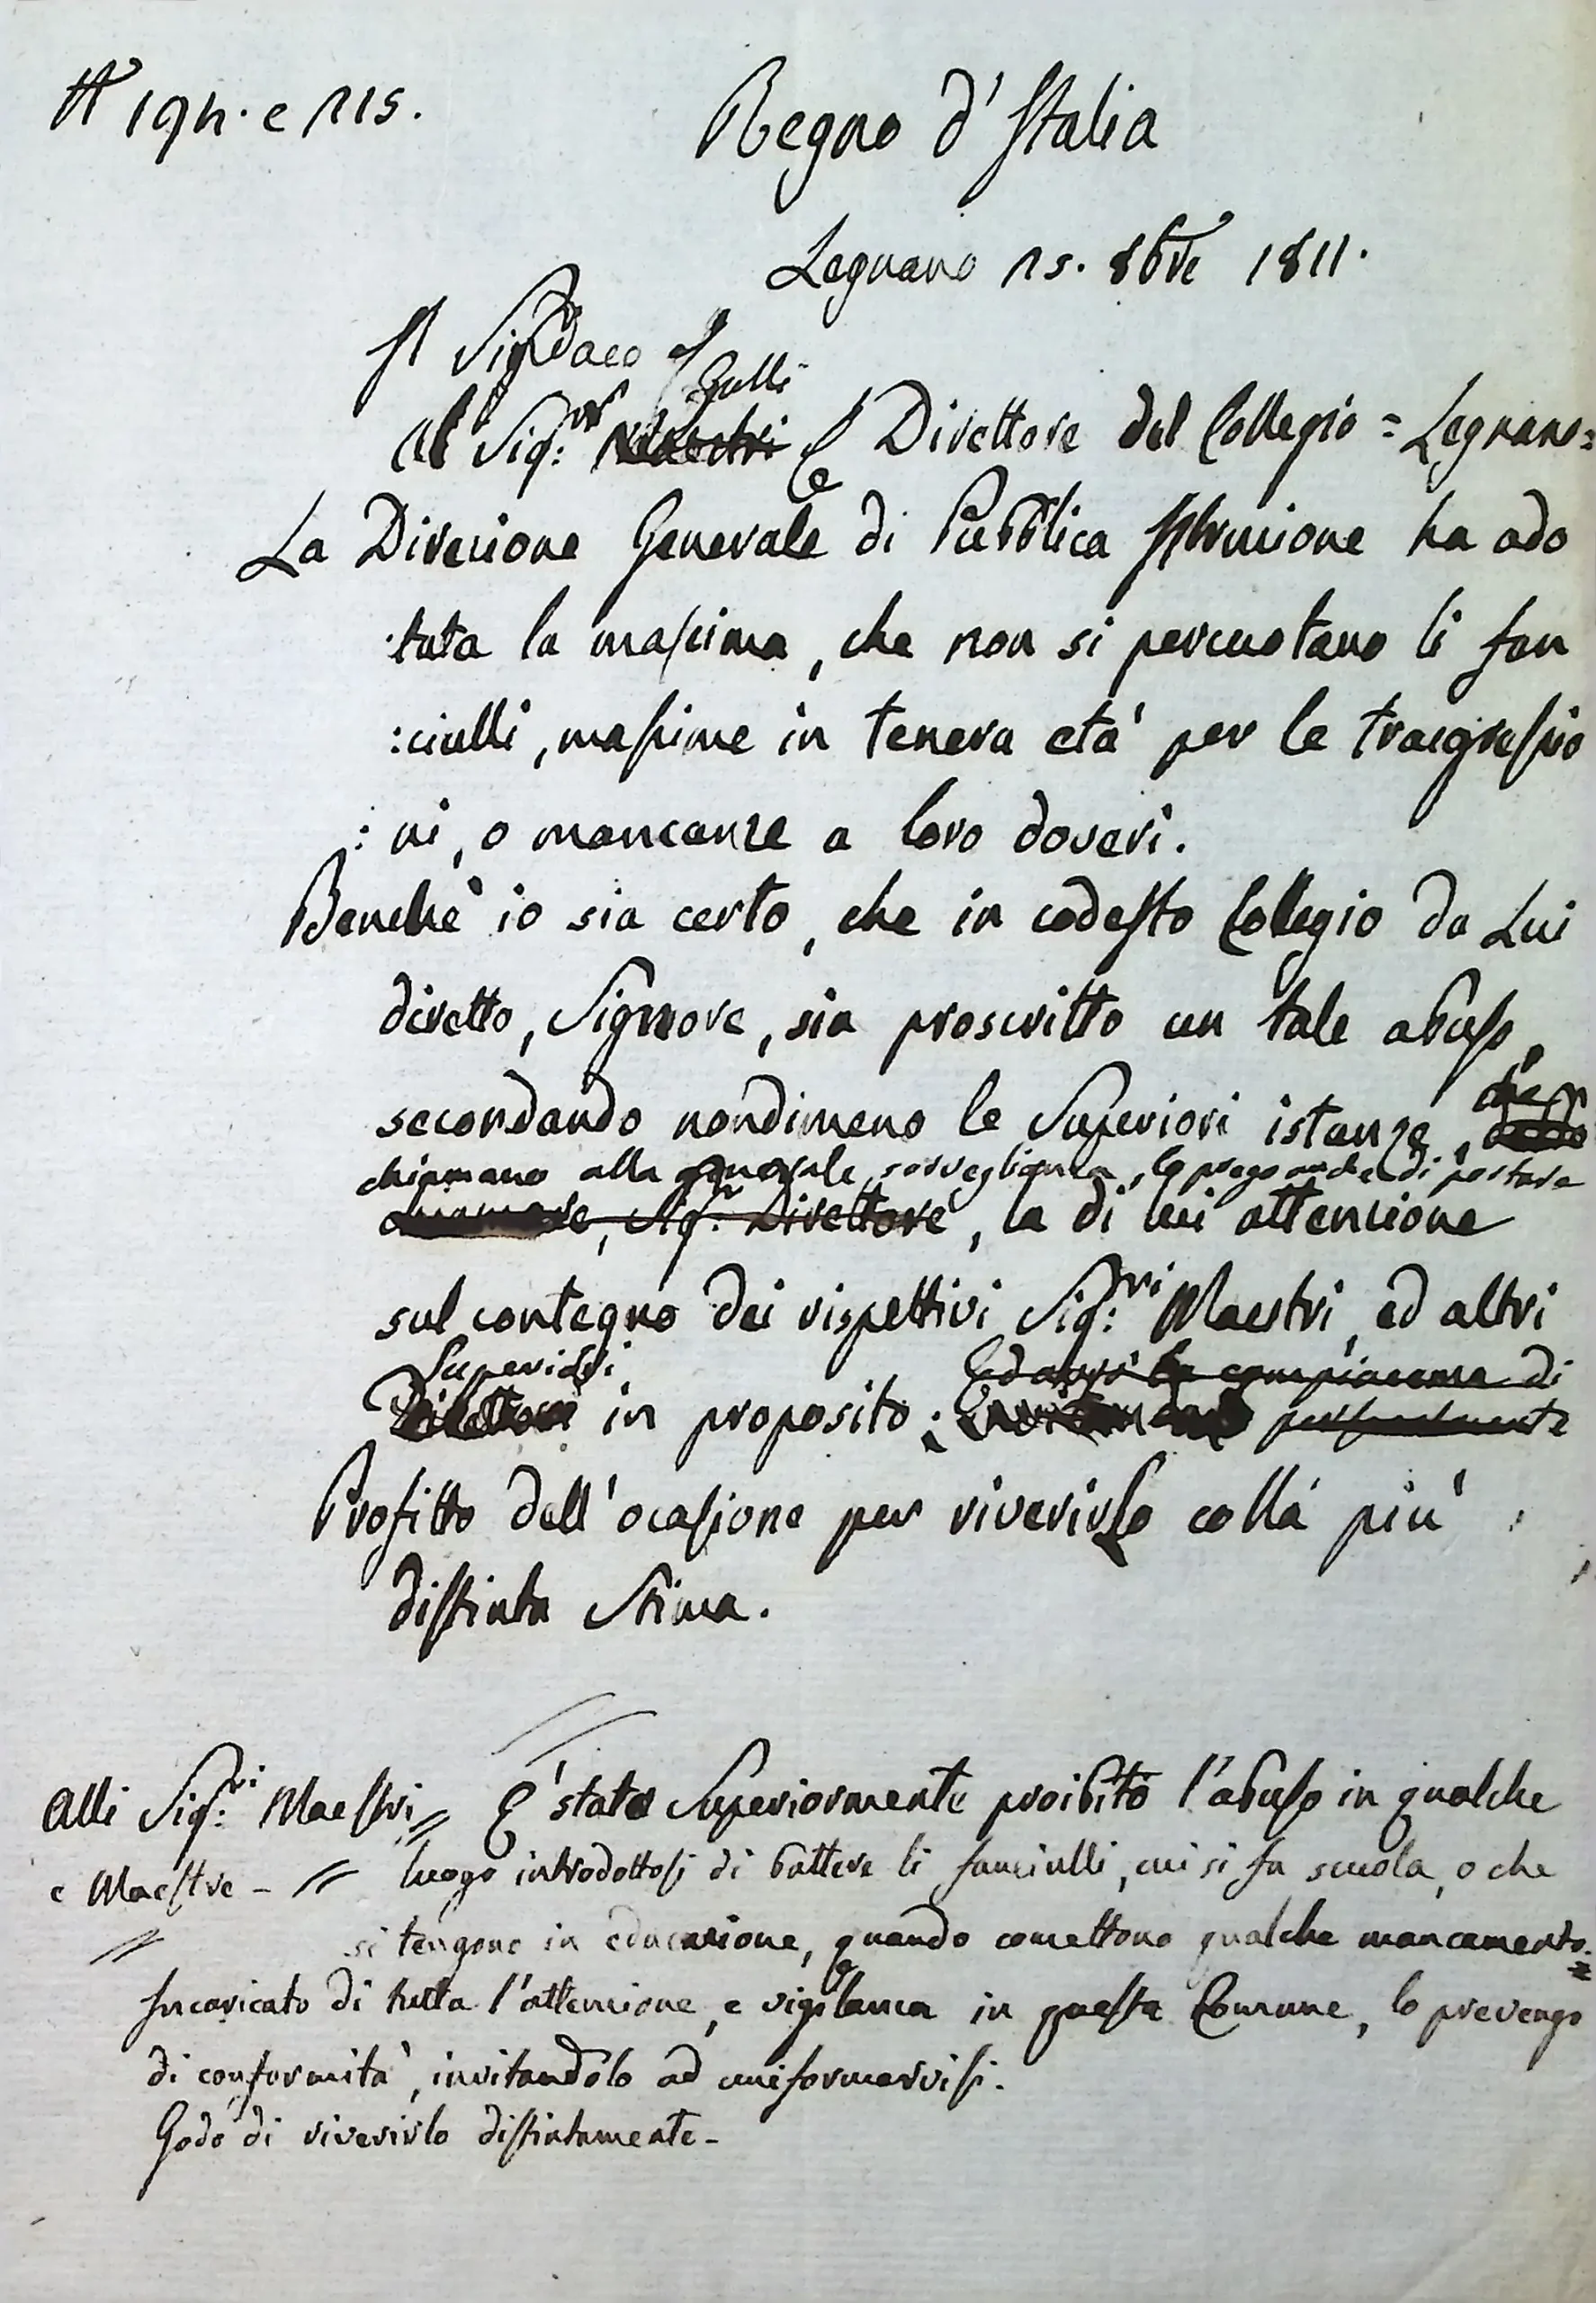 194. e 215.
Regno d'Italia
Legnano 25. 8bre 1811.
Il Sindaco
Galli
Al Sig:r Direttore del Collegio = Legnano =
La Direzione Generale di Pubblica Istruzione ha ado
:tata la massima, che non si percuotano li fan
:ciulli, massime in tenera età per le trasgressio
:ni, o mancanze a loro doveri.
Benchè io sia certo, che in codesto Collegio da Lui
diretto, Signore, sia proscritto un tale abuso,
secondando nondimeno le Superiori istanze, che
chiamano alla generale sorveglianza, lo prego anche di portare
Sig:r Direttore, la di lui attenzione
sul contegno dei rispettivi Sig:ri Maestri, ed altri
Superiori
Direttori in proposito; persualmente
Ed avrò la compiacenza di
Profitto dell'ocasione per riverirlo colla più
distinta Stima.
Alli Sig:ri Maestri // E' stato Superiormente proibito l'abuso in qualche
e Maestre - // luogo introdottosi di battere li fanciulli, cui si fa scuola, o che
// si tengono in educazione, quando comettono qualche mancamento.
Incaricato di tutta l'attenzione, e vigilanza in questa Comune, lo prevengo
di conformità, invitandolo ad uniformarvisi.
Godo di riverirlo distintamente -